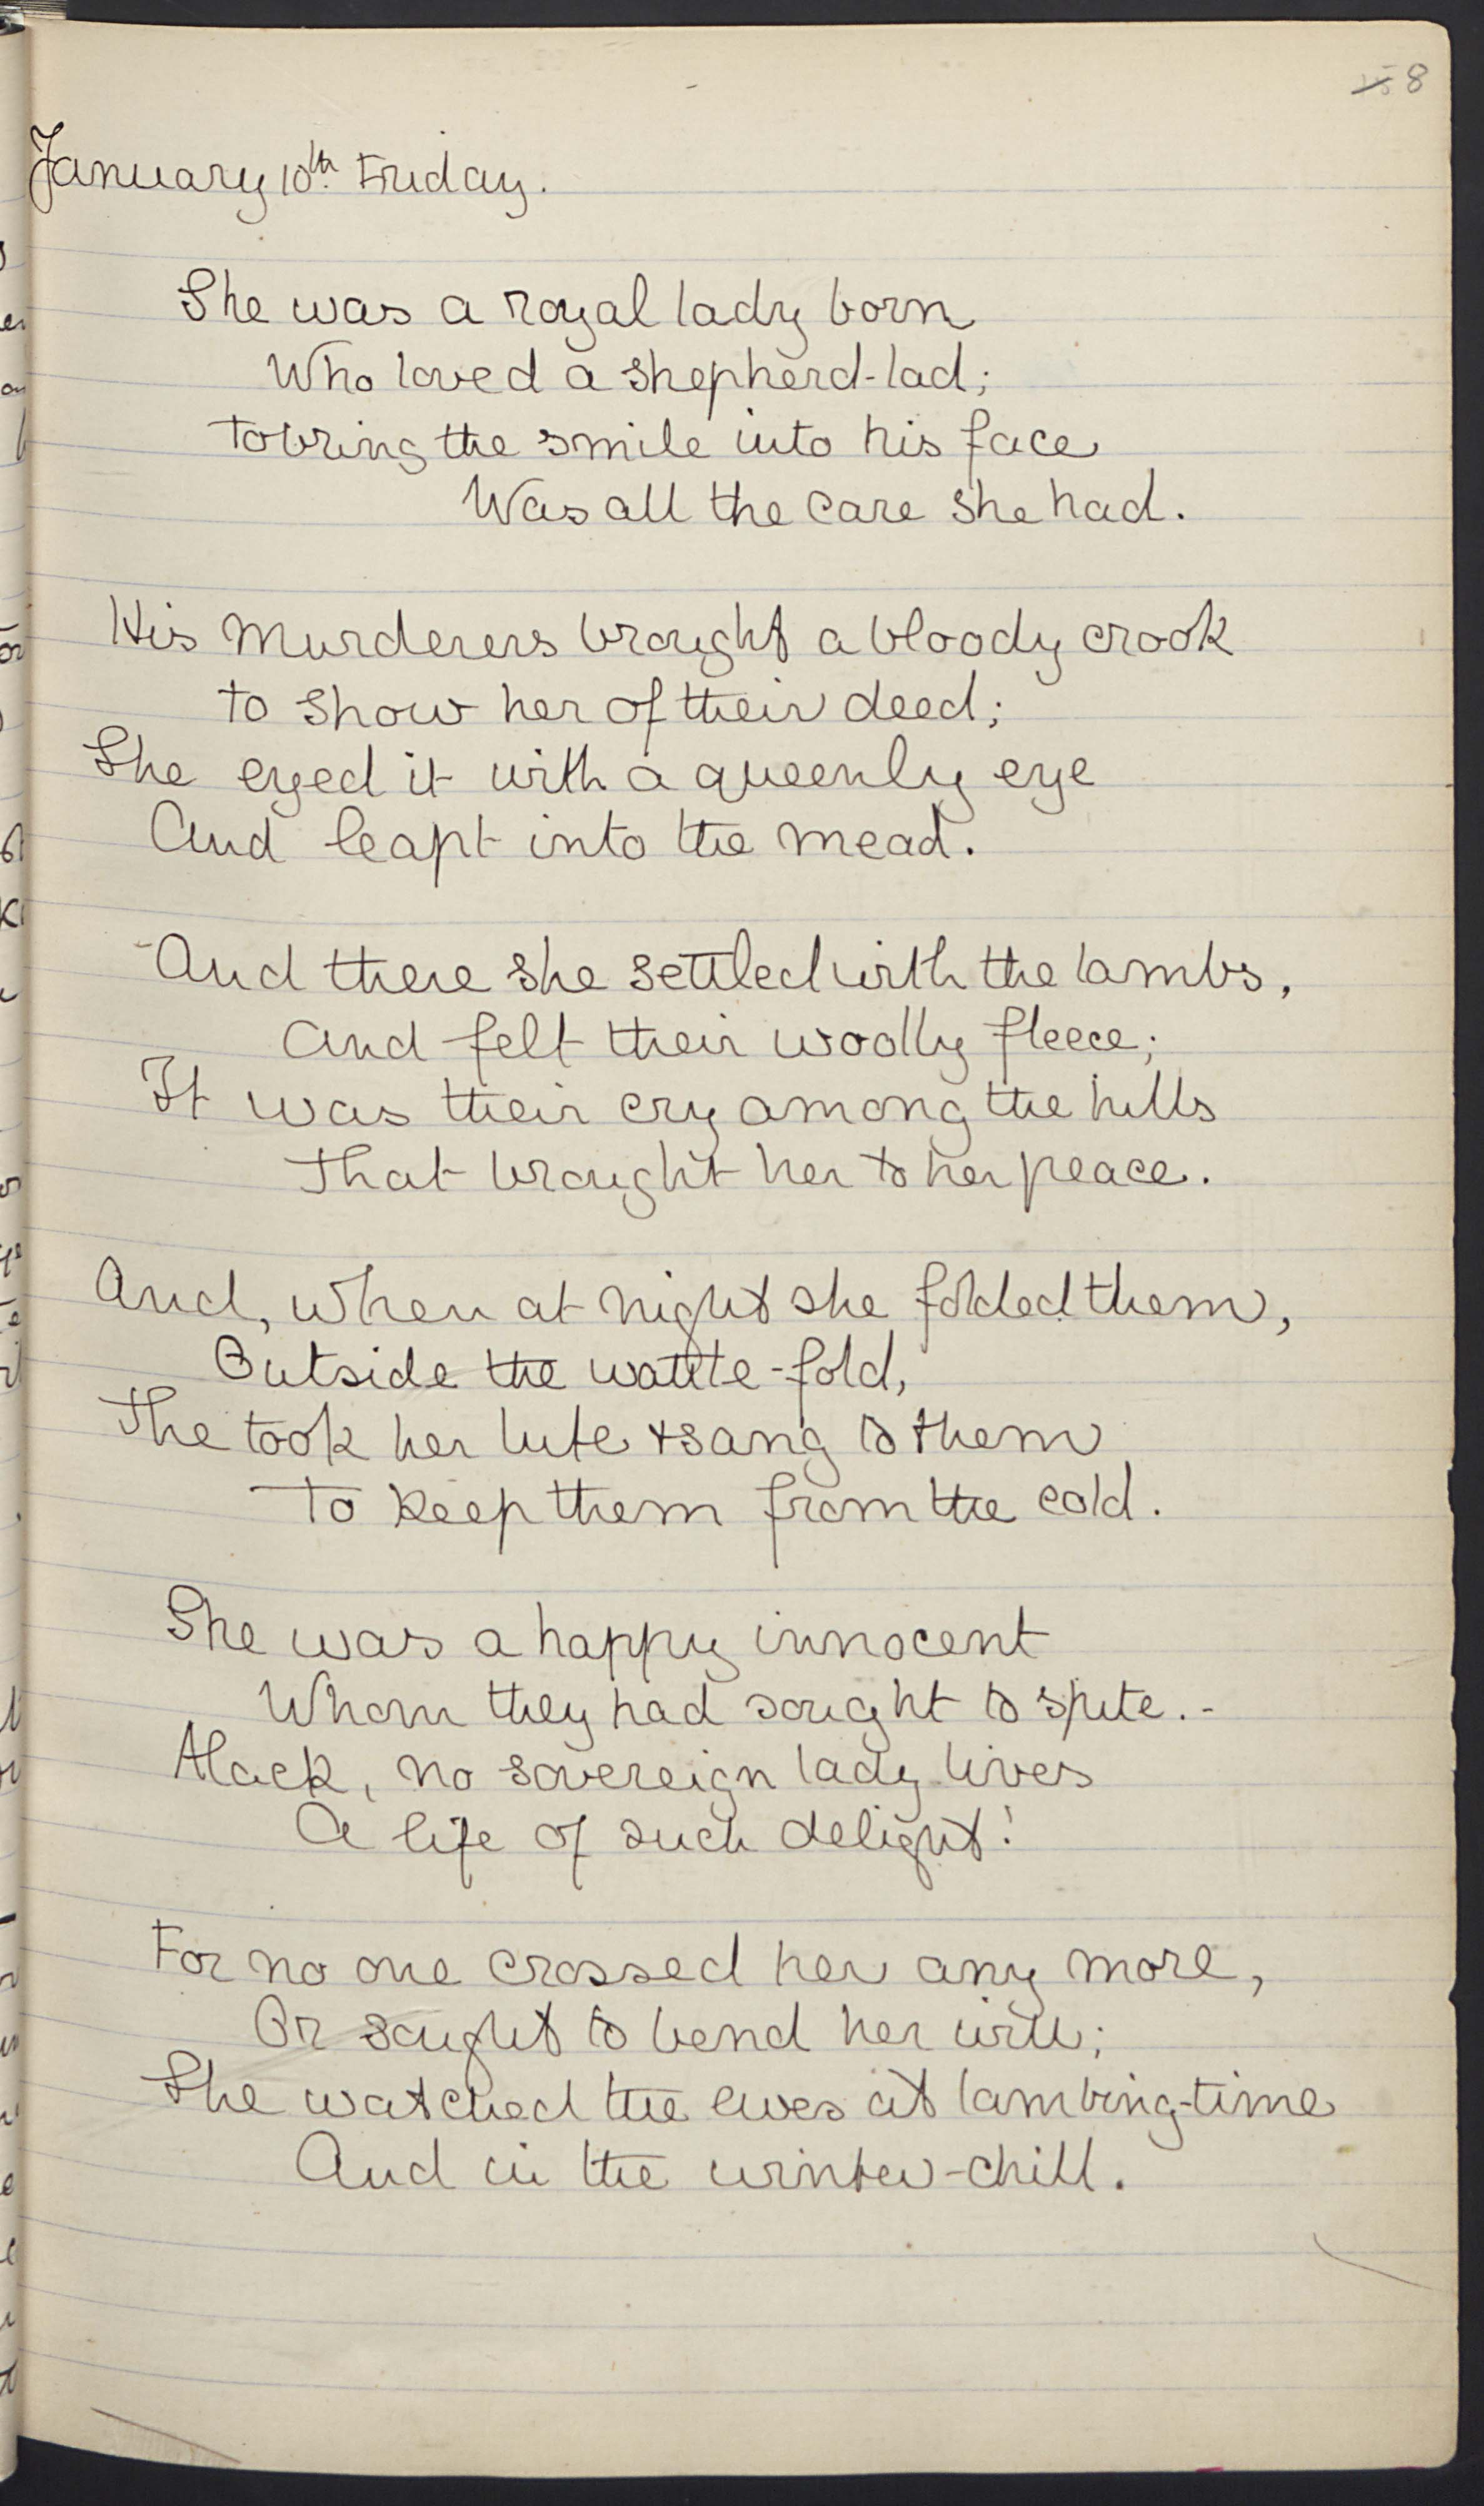 8
January 10th. Friday.
She was a royal lady born
Who loved a shepherd-lad;
To bring the smile into his face
Was all the care she had.
His murderers brought a bloody crook
To show her of their deed;
She eyed it with a queenly eye
And leapt into the mead.
And there she settled with the lambs,
And felt their woolly fleece;
It was their cry among the hills
That brought her to her peace.
And, when at night she folded them,
Outside the wattle-fold,
She took her lute & sang to them
To keep them from the cold.
She was a happy innocent
Whom they had sought to spite. -
Alack, no sovereign lady lives
A life of such delight!
For no one crossed her any more,
Or sought to bend her will;
She watched the ewes at lambing-time
And in the winter-chill.